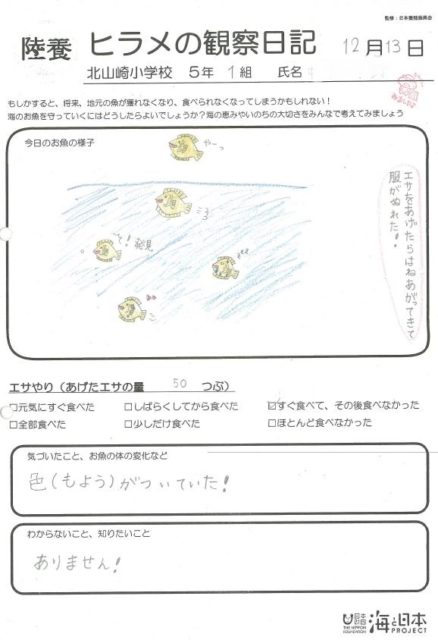 監修：日本養殖振興会
陸養 ヒラメの観察日記 12月13日
北山崎小学校 5年 1組 氏名
もしかすると、将来、地元の魚が獲れなくなり、食べられなくなってしまうかもしれない！
海のお魚を守っていくにはどうしたらよいでしょうか？海の恵みやいのちの大切さをみんなで考えてみましょう
今日のお魚の様子
やーっ
エサをあげたらはねあがってきて
服がぬれた！
発見
エサやり（あげたエサの量 50 つぶ）
□元気にすぐ食べた □しばらくしてから食べた ☑すぐ食べて、その後食べなかった
□全部食べた □少しだけ食べた □ほとんど食べなかった
気づいたこと、お魚の体の変化など
色(もよう)がついていた！
わからないこと、知りたいこと
ありません！
日本財団
THE NIPPON FOUNDATION
海と日本
PROJECT